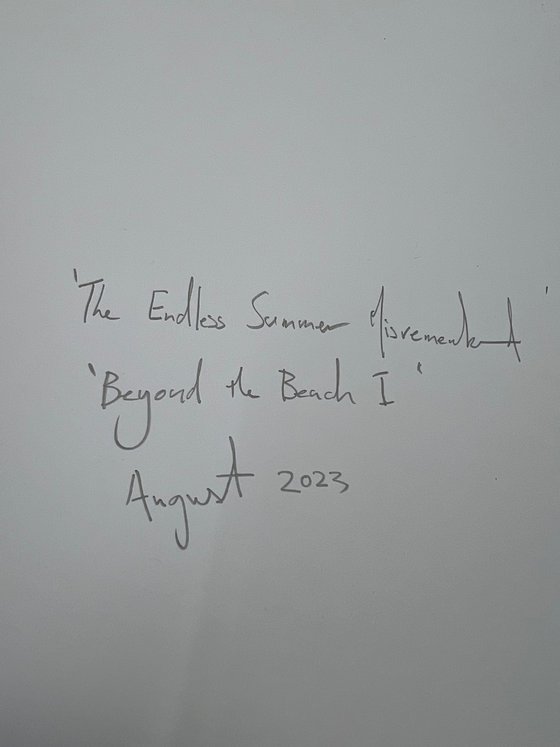 'The Endless Summer '
'Beyond the Beach I'
August 2023